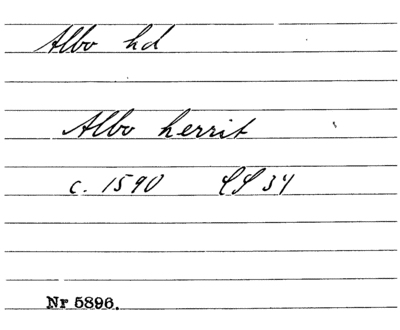 Albo hd
Albo herrit
c. 1590 LS 34
Nr 5896.